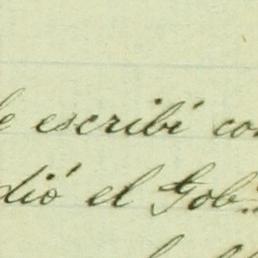 le escribí con
dió el Gob.